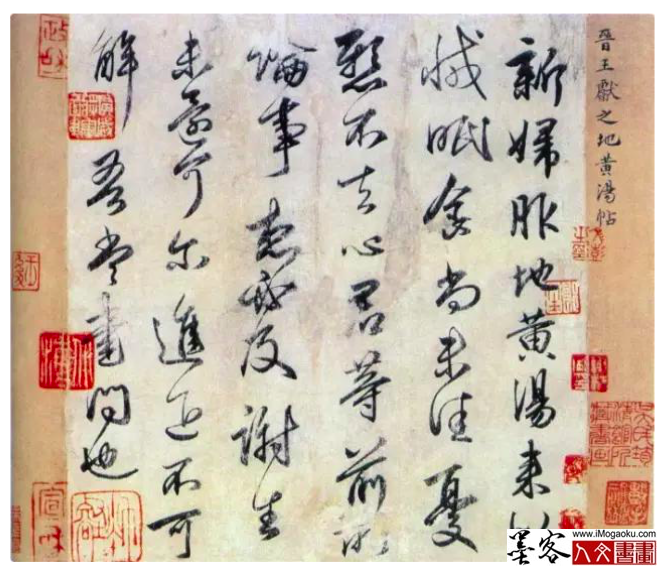 晉王獻之地黃湯帖
新婦服地黃湯來似
減眠食尚未佳憂
懸不去心君等前所
論事想必及謝生
未還可尔進退不可
解吾當書問也
宣和
墨客
人文書畫
www.iMogaoku.com